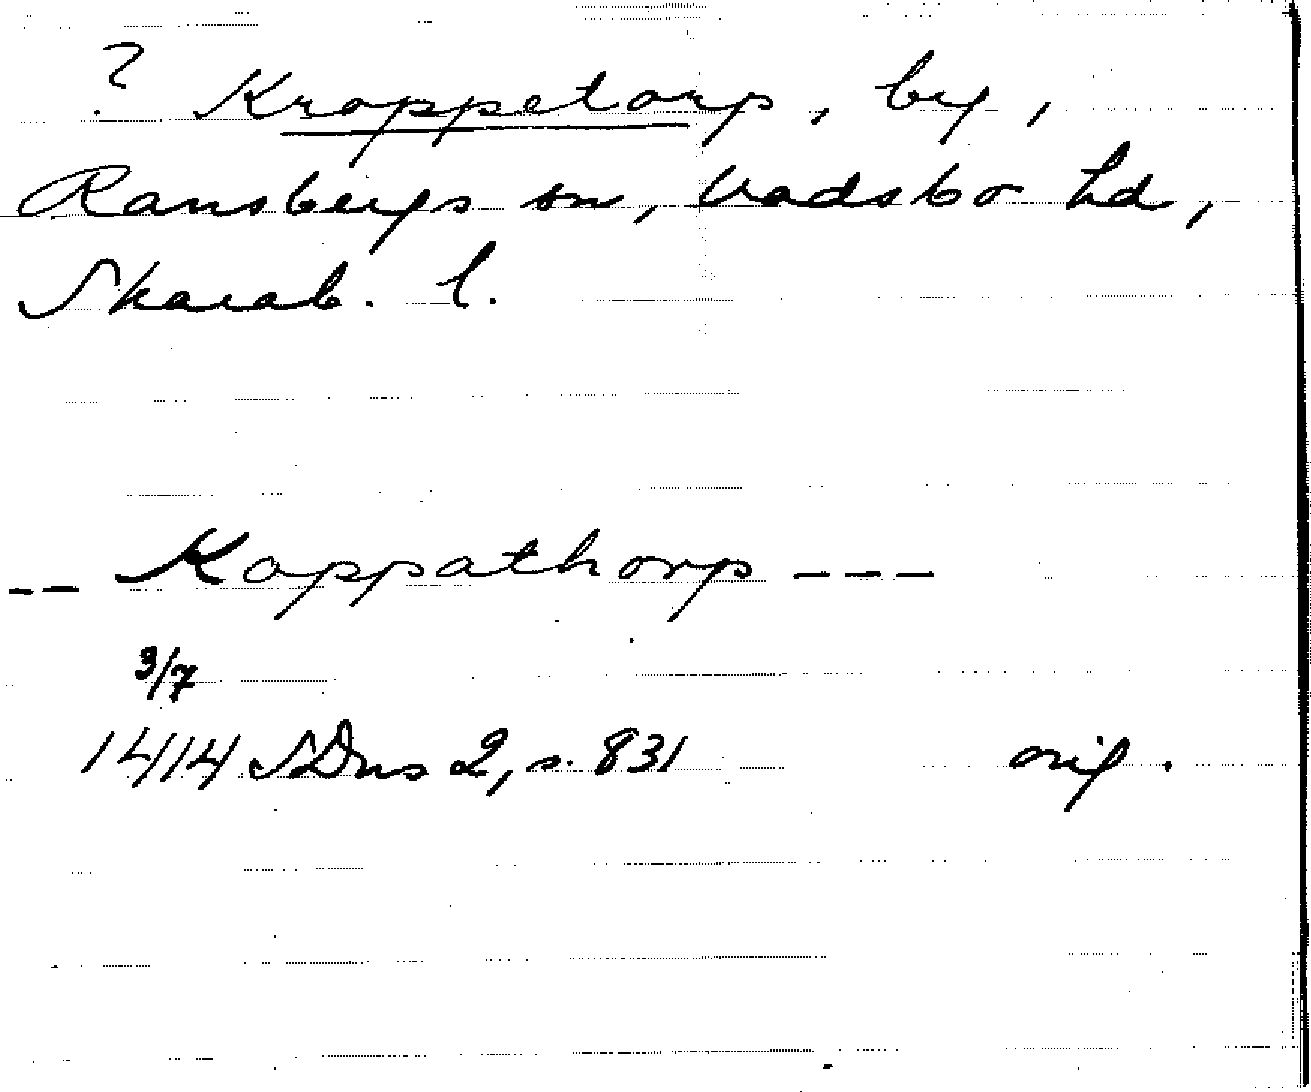 ? Kroppetorp, by,
Ransbergs sn, Vadsbo hd,
Skarab. l.
-- Koppathorp ---
3/7
1414 SDns 2, s. 831 orig.